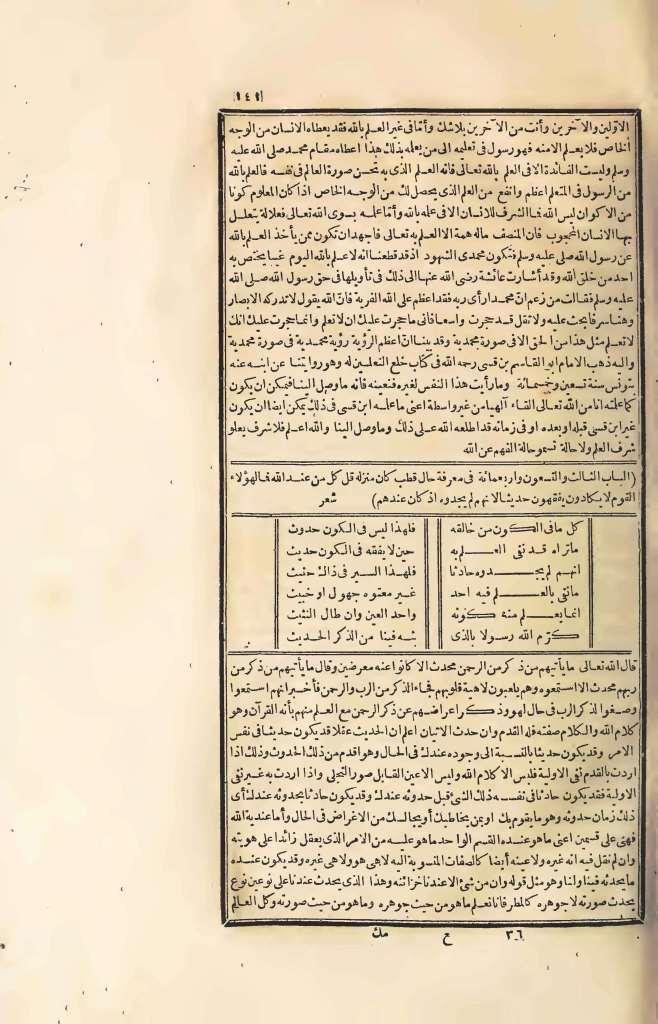 (١٤١)
الاولين والآخرين وأنت من الآخرين بلاشك وأمّا فى غير العلم بالله فقد يعطاه الانسان من الوجه
الخاص فلا يعلم الامنه فهو رسول فى تعليمه الى من يعلمه بذلك هذا اعطاه مقام محمد صلى الله عليه
وسلم وليست الفائدة الا فى العلم بالله تعالى فانه العلم الذى به تحسن صورة العالم فى نفسه فالعلم بالله
من الرسول فى المتعلم اعظم وانفع من العلم الذى يحصل لك من الوجه الخاص اذا كان المعلوم كونا
من الاكوان ليس الله فما الشرف للانسان الا فى علمه بالله وأما علمه بسوى الله تعالى فعلالة يتعلل
بها الانسان المحجوب فان المنصف ماله همة الا العلم به تعالى فاجهد ان تكون ممن يأخذ العلم بالله
عن رسول الله صلى عليه وسلم فتكون محمدى الشهود اذ قد قطعنا انه لا علم بالله اليوم غيبا يختص به
احد من خلق الله وقد أشارت عائشة رضى الله عنها الى ذلك فى تأويلها فى حق رسول الله صلى الله
عليه وسلم فقالت من زعم انّ محمدا رأى ربه فقد اعظم على الله الفرية فانّ الله يقول لا تدركه الابصار
وهنا سر فابحث عليه ولا تقل قد حجرت واسعا فانى ما حجرت عليك ان لا تعلم وانما حجرت عليك انك
لا تعلم مثل هذا من الحق الا فى صورة محمدية وقد بينا انّ اعظم الرؤية رؤية محمدية فى صورة محمدية
واليه ذهب الامام ابو القاسم بن قسى رحمه الله فى كتاب خلع النعلين له وهو روايتنا عن ابنه عنه
بتونس سنة تسعين وخمسمائة وما رأيت هذا النفس لغيره فنعينه فانه ما وصل الينا فيمكن ان يكون
كما علمته انا من الله تعالى القاء آلهيا من غير واسطة اعنى ما علمه ابن قسى فى ذلك يمكن ايضا ان يكون
غير ابن قسى قبله او بعده او فى زمانه قد اطلعه الله على ذلك وما وصل الينا والله اعلم فلا شرف يعلو
شرف العلم ولا حالة تسمو حالة الفهم عن الله
(الباب الثالث والتسعون واربعمائة فى معرفة حال قطب كان منزله قل كل من عند الله فما لهؤلاء
القوم لا يكادون يفقهون حديثا لانهم لم يجدوه اذ كان عندهم) شعر
كل ما فى الكون من خالقه فلهذا ليس فى الكون حدوث
ما تراه قد نفى العلم به حين لا يفقه فى الكون حديث
انهم لم يجدوه حادثا فلهذا السير فى ذاك حثيث
ما نفى بالعلم فيه احد غير معتوه جهول او خبيث
انما يعلم منه كونه واحد العين وان طال النثيث
كرّم الله رسولا بالذى بثه فينا من الذكر الحديث
قال الله تعالى ما يأتيهم من ذكر من الرحمن محدث الا كانوا عنه معرضين وقال ما يأتيهم من ذكر من
ربهم محدث الا استمعوه وهم يلعبون لاهية قلوبهم فجاء الذكر من الرب والرحمن فأخبر انهم استمعوا
وصغوا لذكر الرب فى حال لهو وذكر اعراضهم عن ذكر الرحمن مع العلم منهم بأنه القرآن وهو
كلام الله والكلام صفته فله القدم وان حدث الاتيان اعلم ان الحديث عقلا قد يكون حديثا فى نفس
الامر وقد يكون حديثا بالنسبة الى وجوده عندك فى الحال وهو اقدم من ذلك الحدوث وذلك اذا
اردت بالقدم نفى الاولية فليس الا كلام الله وليس الا عين القابل صور التجلى واذا اردت به غير نفى
الاولية فقد يكون حادثا فى نفسه ذلك الشئ قبل حدوثه عندك وقد يكون حادثا بحدوثه عندك أى
ذلك زمان حدوثه وهو ما يقوم بك او بمن يخاطبك أو يجالسك من الاغراض فى الحال وأما عندية الله
فهى على قسمين اعنى ما هو عنده القسم الواحد ما هو عليه من الامر الذى يعقل زائدا على هويته
وان لم نقل فيه انه غيره ولا عينه أيضا كالصفات المنسوبة اليه لا هى هو ولا هى غيره وقد يكون عنده
ما يحدثه فينا ولنا وهو مثل قوله وان من شئ الا عندنا خزائنه وهذا الذى يحدث عندنا على نوعين نوع
يحدث صورته لا جوهره كالمطر فانا نعلم ما هو من حيث جوهره وما هو من حيث صورته وكل العالم
٣٦ ع مك